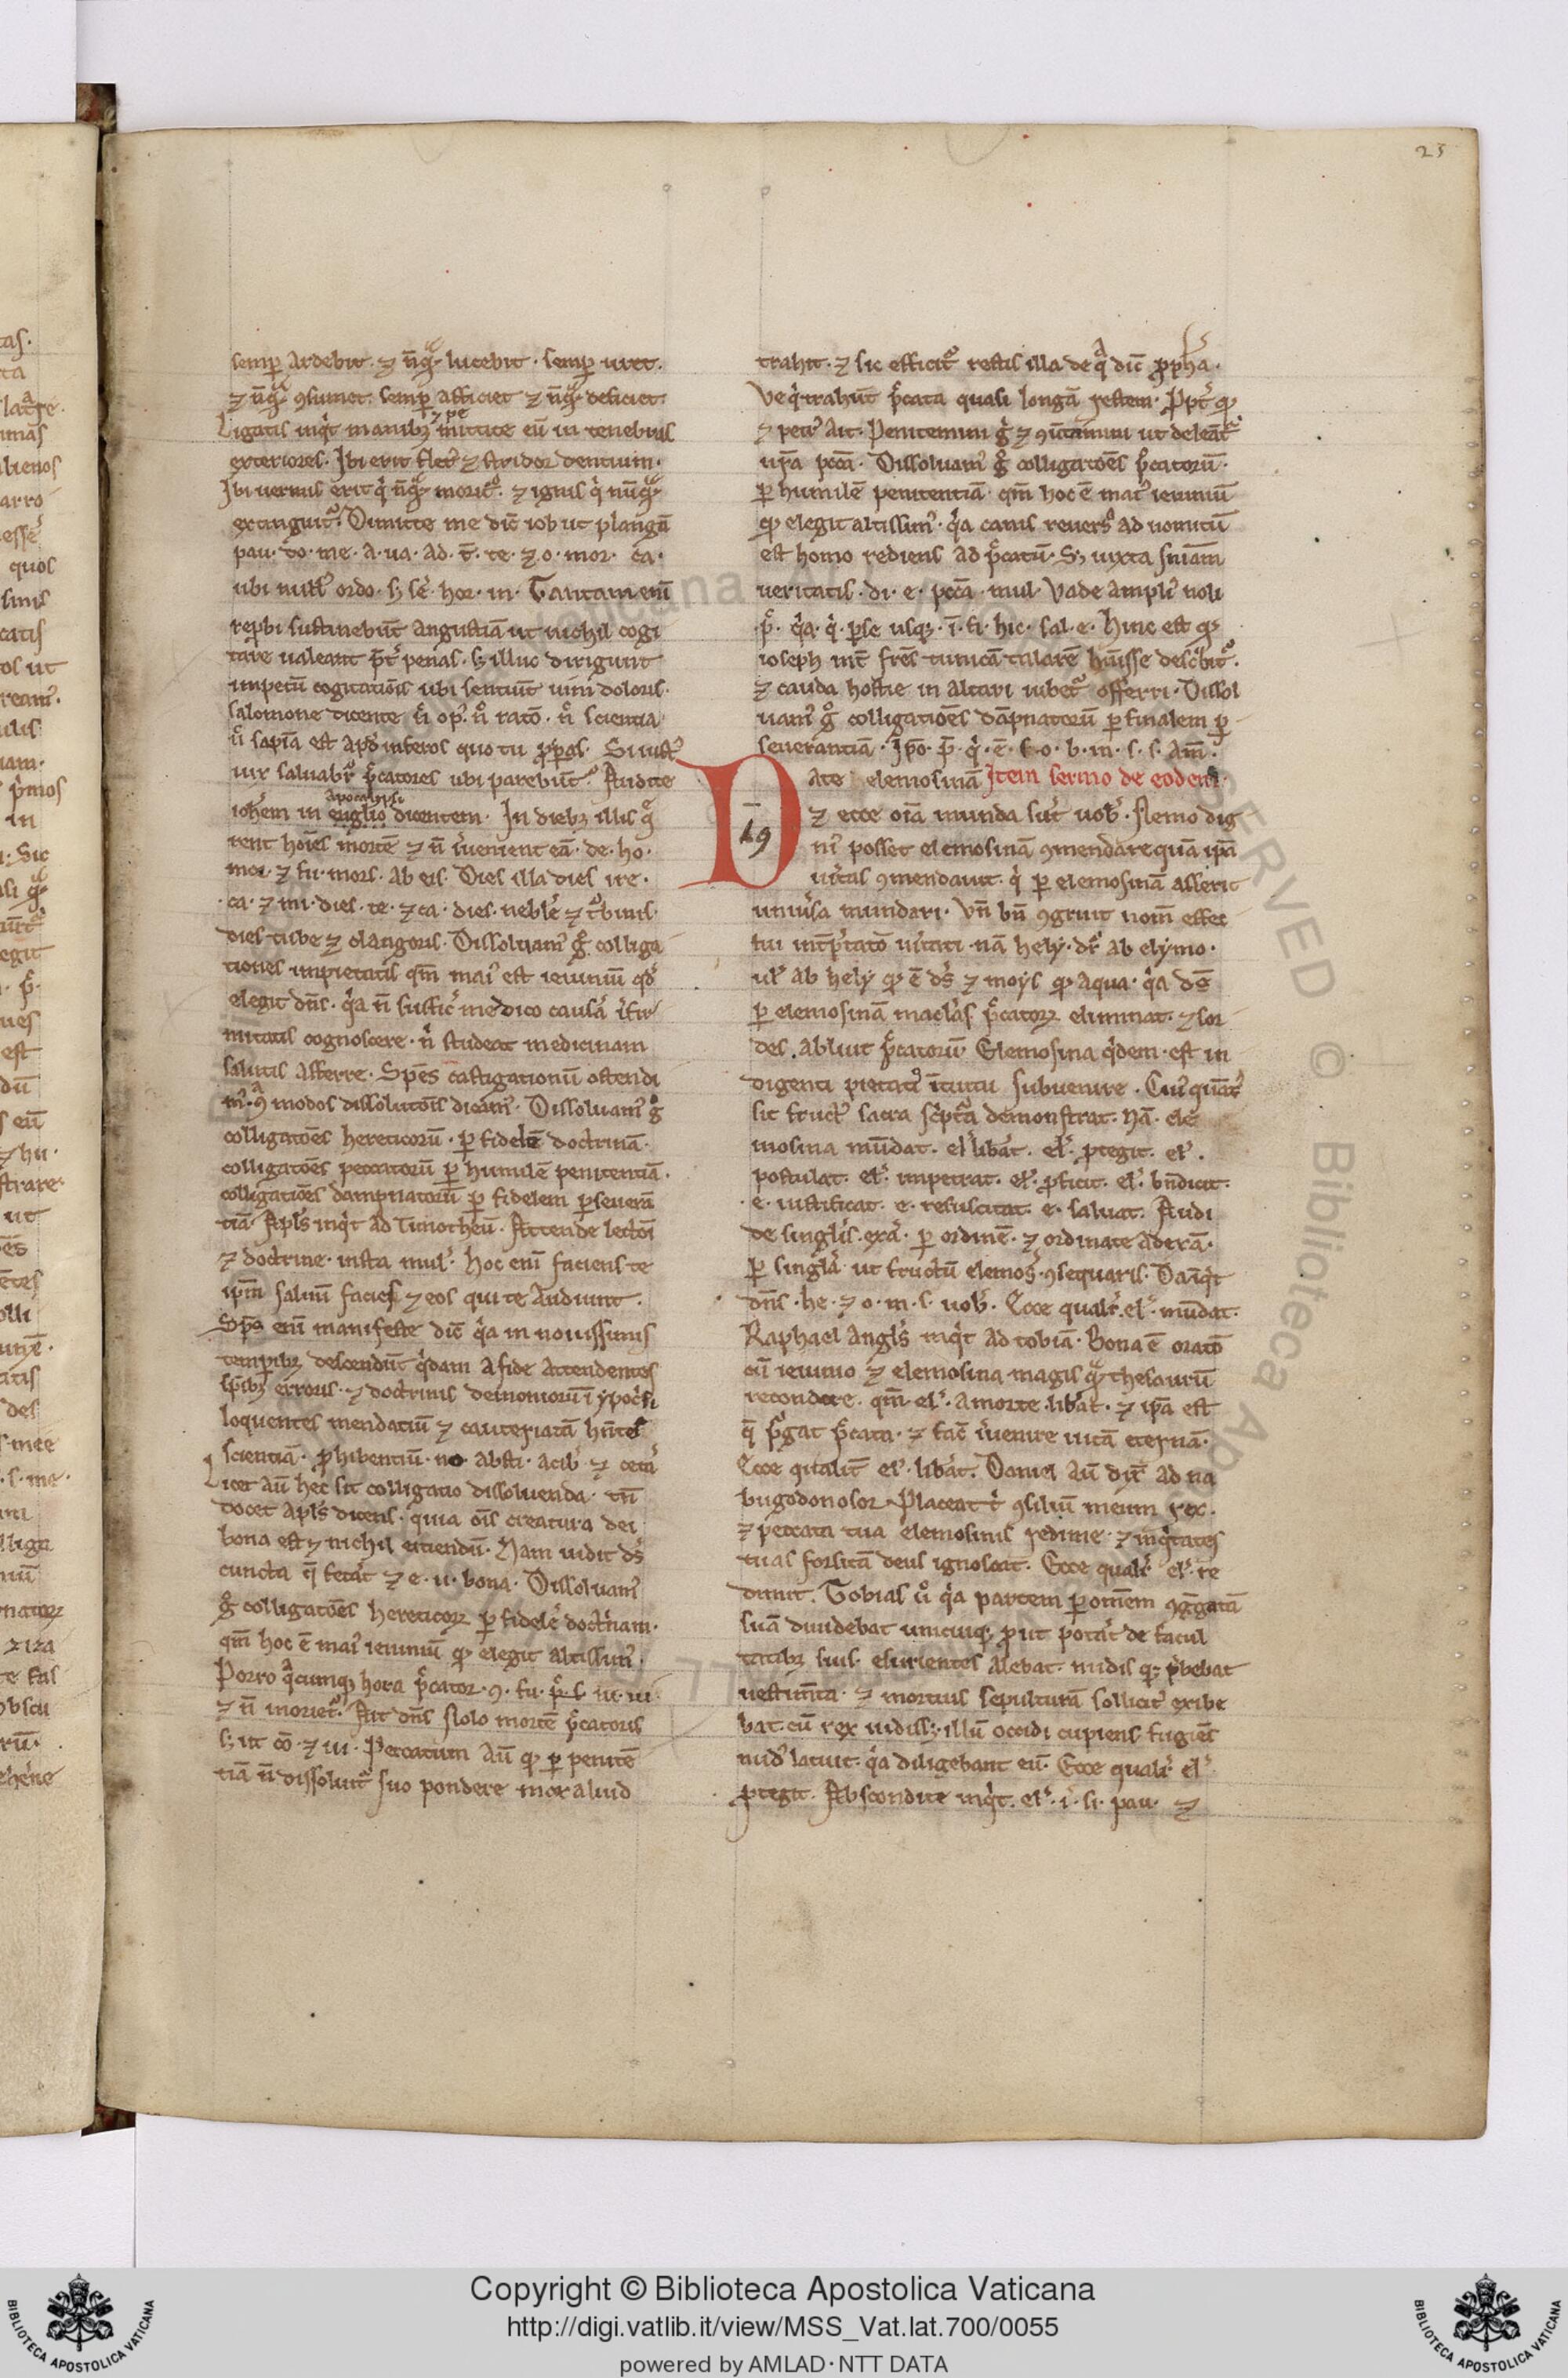 23
semp ardebit. ⁊ nq̄ lucebit. semp uret.
⁊ nūq̄ ꝯsumet. semp afficiet ⁊ nūq̄ deficiet.
⁊ pe
Ligatis inqͥt manibꝫ mittite eū in tenebras
exteriores. Ibi erit fletꝰ ⁊ stridor dentium.
Ibi uermis erit qͥ nūq̄ moritᷣ. ⁊ ignis qͥ nūq̄
extinguitᷣ. Dimitte me dic̄ iob ut plangā
pau. to. me. a. ua. ad. t̄. te. ⁊ o. mor. ca.
ubi nullꝰ ordo. sꝫ sē. hor. in. Tantam enī
reꝓbi sustinebūt angustiā ut nichil cogi
tare ualeant p̄t penas. sꝫ illuc dirigunt
impetū cogitatiōis ubi sentiūt uim doloris.
salomone dicente n̄ opꝰ. n̄ ratō. n̄ scientia
n̄ sapīa est apd̾ inferos quo tu ꝓpas. Si iustꝰ
uix saluabitᷣ pͨcatores ubi parebūt. Audite
apocalypsi
ioh̄em in euglio dicentem. In diebꝫ illis q̄
rent hoīes mortē ⁊ n̄ īuenient eā. de. ho.
moi. ⁊ fu. mors. ab eis. Dies illa dies ire.
ca. ⁊ mi. dies. te. ⁊ ca. dies. neble ⁊ tᷣbinis.
dies tube ⁊ clangoris. Dissoluamꝰ gͦ colliga
tiones impietatis qm̄ maiꝰ est ieiuniū qd̾
elegit dn̄s. qͥa n̄ sufficͥ medico causā īfir
mitatis cognoscere. nͥ studeat medicinam
salutis afferre. Spēs castigationū ostendi
mꝰ. ꝯ modos dissolutōis dicamꝰ. Dissoluamꝰ gͦ
colligatōēs hereticorū. ꝑ fidelē doctrinā.
colligatōēs peccatorū ꝑ humilē penitentiā.
colligatiōēs dampnatorū ꝑ fidelem ꝑseuerā
tiā. Apl̄s inqͥt ad Timotheū. Attende lectōī
⁊ doctrine. insta mulꝰ. hoc enī faciens te
ip̄m saluū facies ⁊ eos qui te audiunt.
Sp̄s enī manifeste dic̄ qͥa in nouissimis
temporibꝫ descendūt qͥdam a fide attendentes
sp̄ibꝫ erroris. ⁊ doctrinis demoniorū ī ypocͥsi
loquentes mendatiū ⁊ cauteriatā hn̄tes
scientiā. ꝓhibentiū. no. absti. acib. ⁊ ceta
Licet aū hec sit colligatio dissoluenda. tn̄
docet apl̄s dicens. quia ōis creatura dei
bona est ⁊ nichil eiciendū. Nam uidit ds̄
cuncta q̄ fecͣt ⁊ e. u. bona. Dissoluamꝰ
gͦ colligatōēs hereticoꝝ ꝑ fidelē doctͥnam.
qm̄ hoc ē maiꝰ ieiuniū qͦ elegit altissimꝰ.
Porro qͣcumqꝫ hora pͨcator. ꝯ. fu. pͨ. s. ui. ui
⁊ n̄ morietᷣ. Ait dn̄s Nolo mortē pͨcatoris
sꝫ ut cō. ⁊ ui. Peccatum aū qͦ ꝑ penitē
tiā n̄ dissoluitᷣ suo pondere mox aliud
trahit. ⁊ sic efficitᷣ restis illa de qͣ dic̄ ꝓpha.
Ve qͥ trahūt pͨcata quasi longā restem. Ꝓptͥ qͦ
⁊ petrꝰ ait. Penitemini gͥ ⁊ ꝯūtimini ut deleātᷣ
ur̄a pcc̄a. Dissoluamꝰ gͦ colligatōēs pͨcatorū.
ꝑ humilē penitentiā. qm̄ hoc ē maiꝰ ieiuniū
qͦ elegit altissimꝰ. qͥa canis reuersꝰ ad uomitū
est homo rediens ad pͨcatū. Sꝫ iuxta sn̄iam
ueritatis. di. e. pcc̄a. mul. Vade ampliꝰ noli
pͨ. qͥa. qͥ. ꝑse usqꝫ. ī. fi. hic. sal. e. Hinc est qͦ
ioseph int̄ fr̄es tunicā talarē habuisse descͥbitᷣ.
⁊ cauda hostie in altari iubetᷣ offerri. Dissol
uamꝰ gͦ colligatiōēs dāpnatorū ꝑ finalem ꝑ
seuerantiā. Ip̄o. p̄. qͥ. ē. f. o. b. in. s. s. Am̄.
Date elemosinā Item sermo de eodem.
19
⁊ ecce oīa munda sūt uobꝰ. Nemo dig
niꝰ posset elemosinā ꝯmendare quā ip̄a
uͥtas ꝯmendauit. qͥ ꝑ elemosinā asserit
uniuͥsa mundari. Vn̄ bn̄ ꝯgruit nom̄ effec
tui int̄p̄tatō uͥtati. nā hely. dr̄ ab elymo.
ul̾ ab hely qͦ ē ds̄ ⁊ moys qͦ aqua. qͥa ds̄
ꝑ elemosinā maclas pͨcatoꝝ eliminat. ⁊ sor
des abluit pͨcatorū. Elemosina qͥdem est in
digenti pietatis ītuitu subuenire. Cuiꝰ quātꝰ
sit fructꝰ sacra scͥptͣa demonstrat. Nā. ele
mosina mūdat. elꝰ libāt. elꝰ. ꝓtegit. elꝰ.
postulat. elꝰ. impetrat. elꝰ. ꝓficit. elꝰ. bn̄dicit.
e. iustificat. e. resuscitat. e. saluat. Audi
de singlis. exͣ. ꝑ ordinē. ⁊ ordinate aderā.
ꝑ singlā ut fructū elemos. ꝯsequaris. Da īqͥt
dn̄s. he. ⁊ o. m. s. uobꝰ. Ecce qualr̄. elꝰ. mūdat.
Raphael angl̾s inqͥt ad tobiā. Bona ē oratō
cū ieiunio ⁊ elemosina magis qͣ thesaurū
recondere. qm̄ elꝰ. a morte libāt. ⁊ ip̄a est
q̄ pͥgat pͨcata. ⁊ fac̄ īuenire uitā eternā.
Ecce qualit̄ elꝰ. libāt. Daniel aū dix̄ ad na
bugodonosor Placeat tͥ ꝯsiliū meum rex.
⁊ peccata tua elemosinis redime. ⁊ inqͥtates
tuas forsitā deus ignoscat. Ecce qualr̄ elꝰ. re
dimit. Tobias uͦ qͥa partem ꝑ omēm ꝯggatā
suā diuidebat unicuiqꝫ ꝓut potāt de facul
tatibꝫ suis. esurientes alebat. nudis qꝫ pͥbebat
uestimn̄ta. ⁊ mortuis sepulturā sollicitꝰ exibe
bat. cū rex uidissꝫ. illū occidi cupiens fugiēs
nudꝰ latuit. qͥa diligebant eū. Ecce qualr̄ elꝰ.
ꝓtegit. Abscondite inqͥt. elꝰ. i. si. pau. ⁊
Copyright © Biblioteca Apostolica Vaticana
http://digi.vatlib.it/view/MSS_Vat.lat.700/0055
powered by AMLAD · NTT DATA